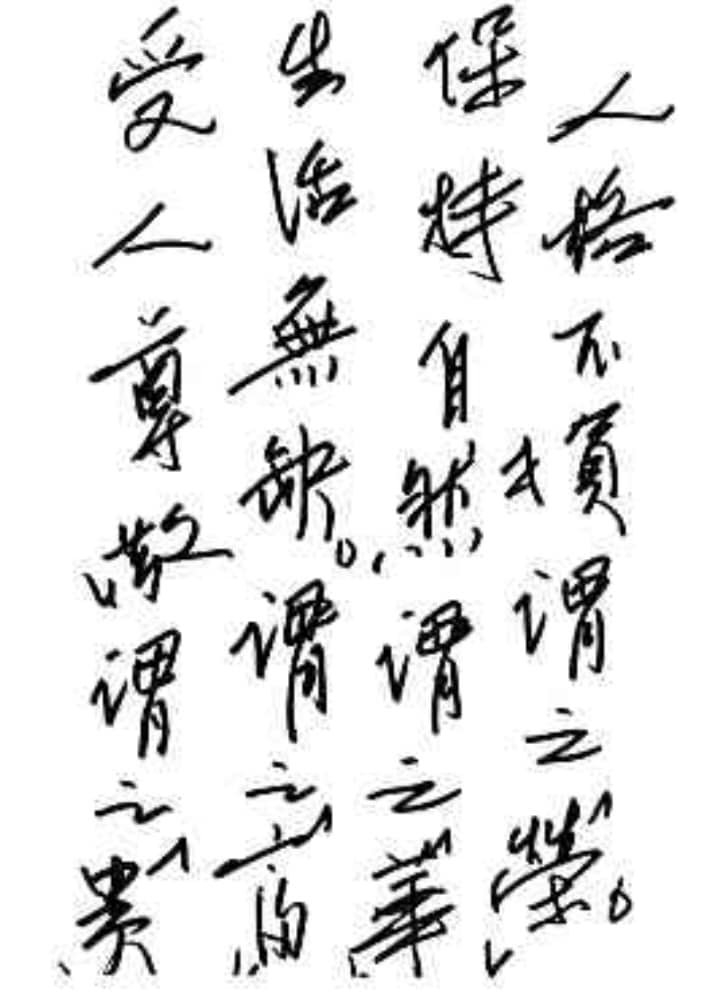 人格不損謂之「榮」。
保持自然謂之「華」
生活無缺。謂之「富」
受人尊敬謂之「貴」